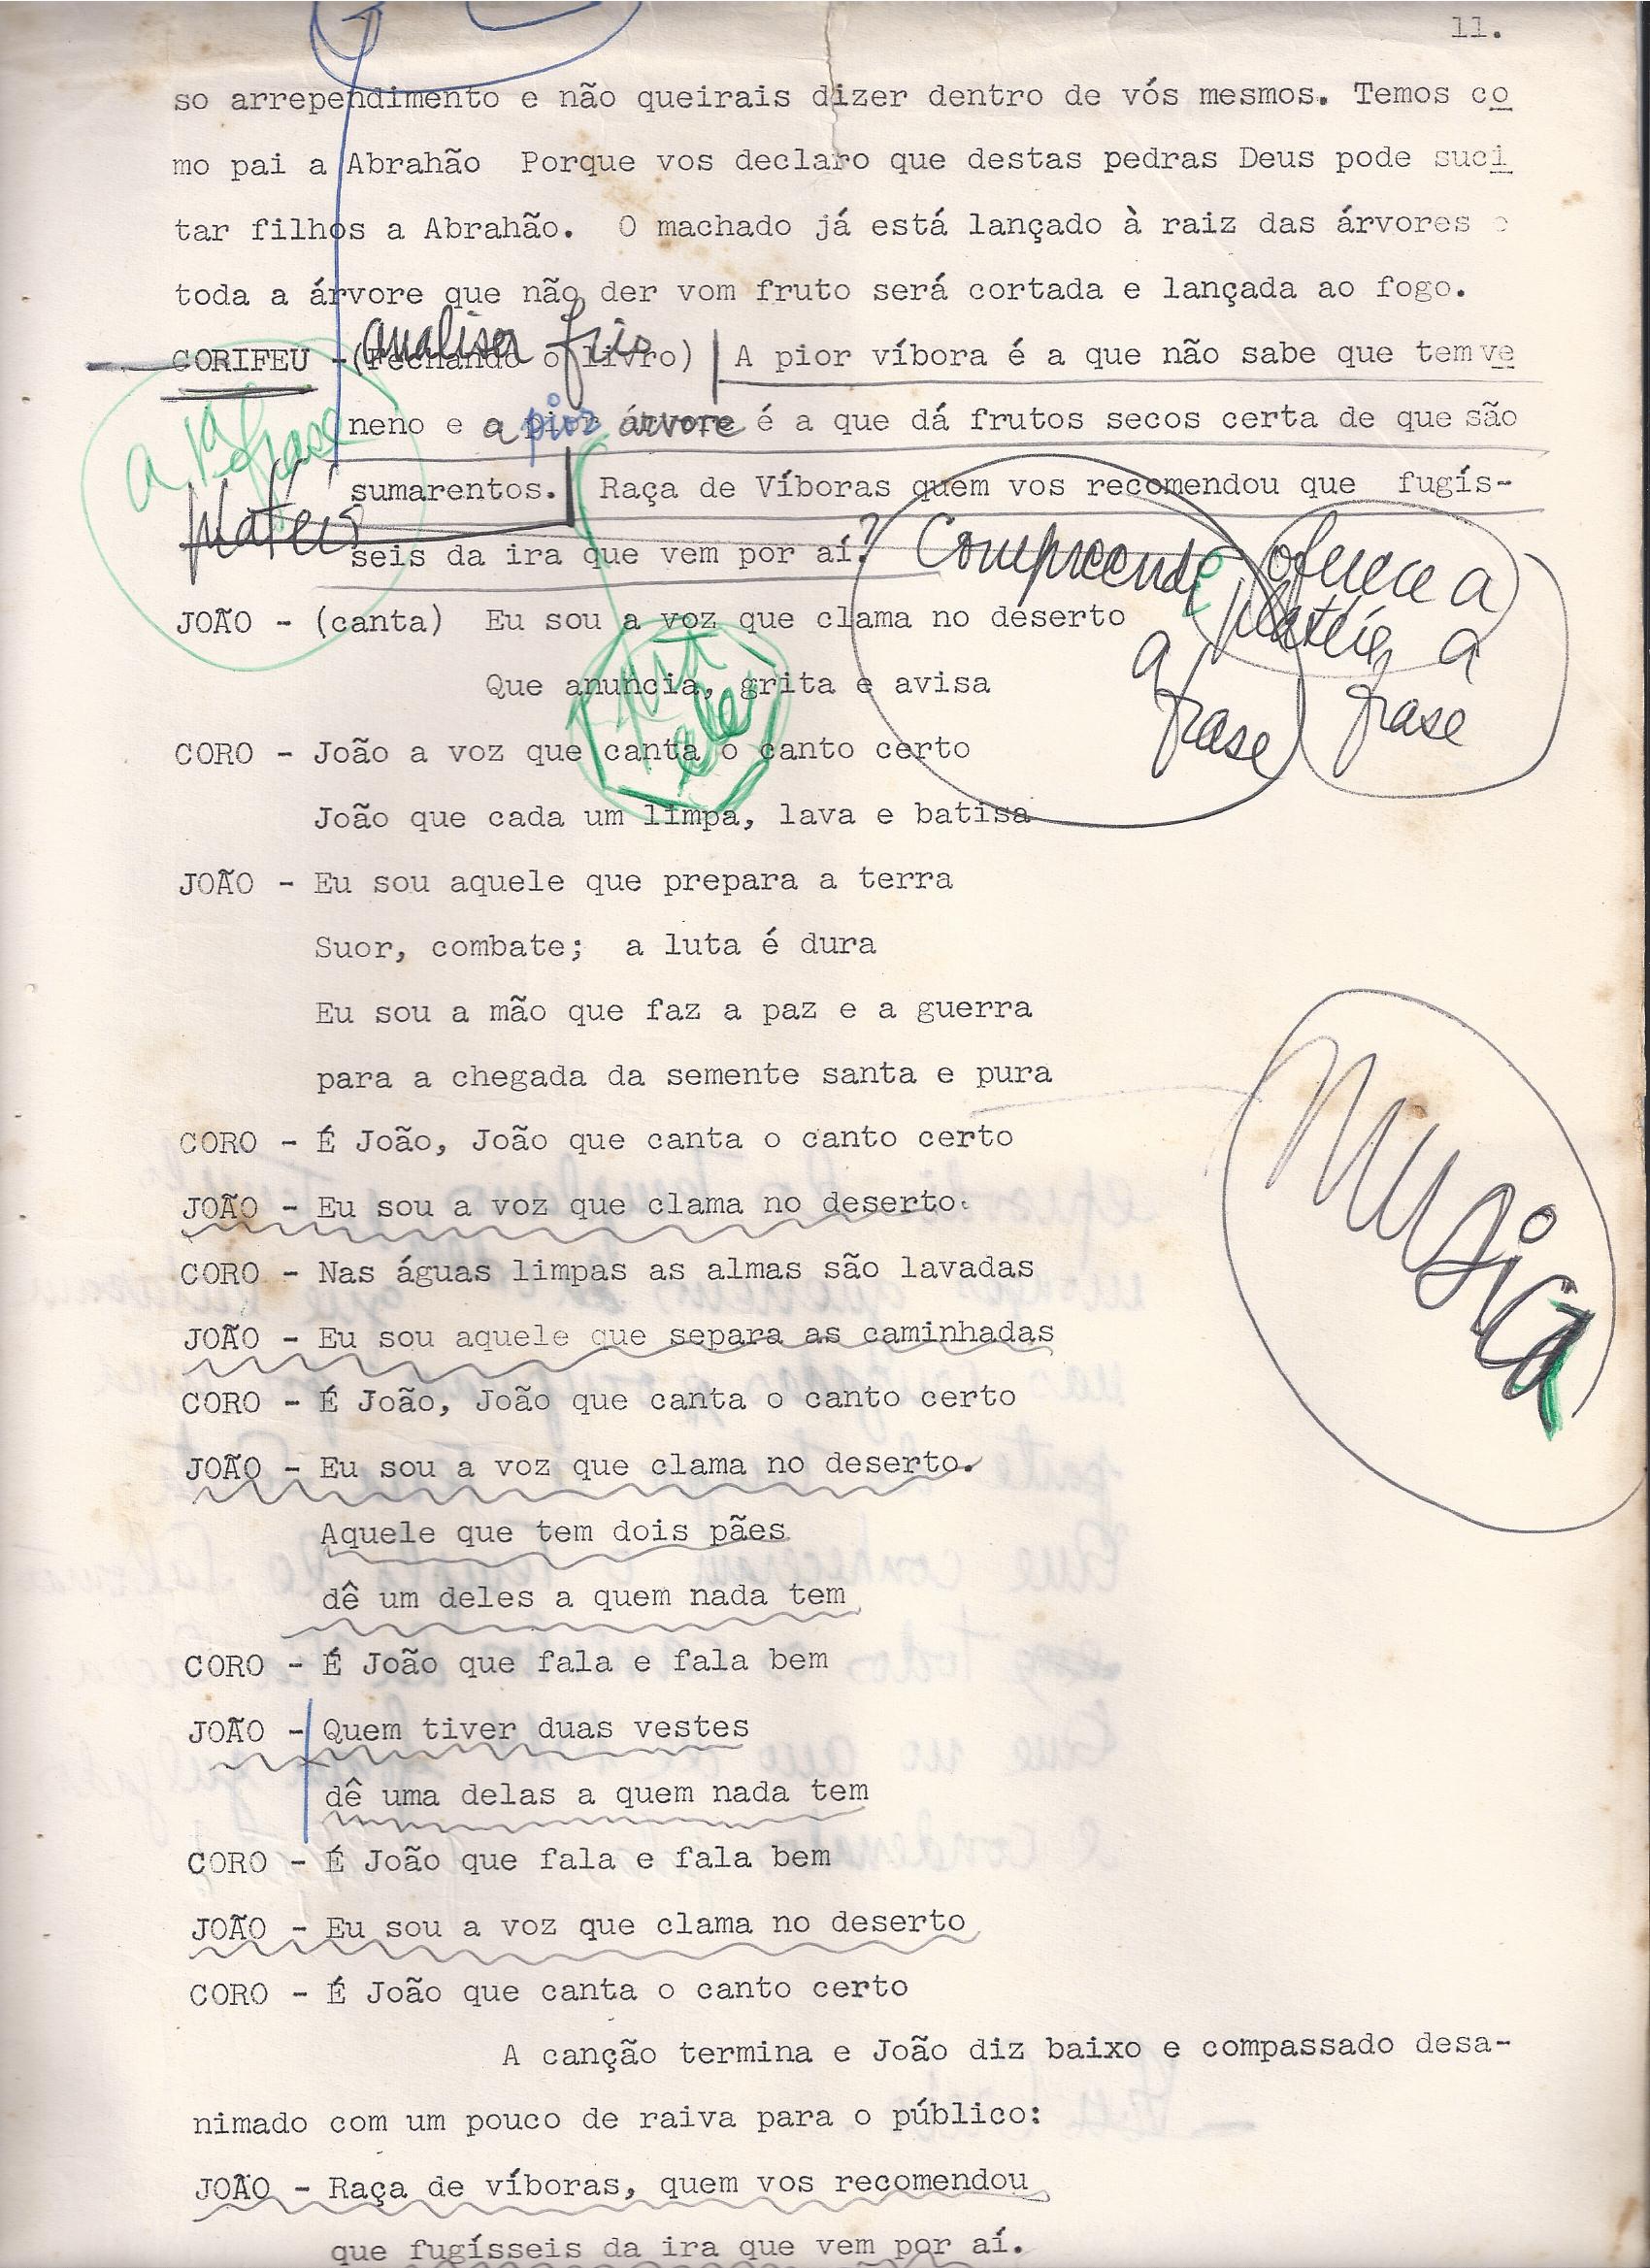 11.
so arrependimento e não queirais dizer dentro de vós mesmos. Temos co
mo pai a Abrahão  Porque vos declaro que destas pedras Deus pode suci
tar filhos a Abrahão.  O machado já está lançado à raiz das árvores e
toda a árvore que não der vom fruto será cortada e lançada ao fogo.
analisa frio
CORIFEU -(Fechando o livro) A pior víbora é a que não sabe que tem ve
a 1ª frase
neno e a pior árvore é a que dá frutos secos certa de que são
sumarentos. Raça de Víboras quem vos recomendou que  fugís-
platéia
seis da ira que vem por aí?
Compreende a frase
oferece a platéia a frase
JOÃO - (canta)  Eu sou a voz que clama no deserto
Que anuncia, grita e avisa
ele
CORO - João a voz que canta o canto certo
João que cada um limpa, lava e batisa
JOÃO - Eu sou aquele que prepara a terra
Suor, combate;  a luta é dura
Eu sou a mão que faz a paz e a guerra
para a chegada da semente santa e pura
musica
CORO - É João, João que canta o canto certo
JOÃO - Eu sou a voz que clama no deserto.
CORO - Nas águas limpas as almas são lavadas
JOÃO - Eu sou aquele que separa as caminhadas
CORO - É João, João que canta o canto certo
JOÃO - Eu sou a voz que clama no deserto.
Aquele que tem dois pães
dê um deles a quem nada tem
CORO - É João que fala e fala bem
JOÃO - Quem tiver duas vestes
dê uma delas a quem nada tem
CORO - É João que fala e fala bem
JOÃO - Eu sou a voz que clama no deserto
CORO - É João que canta o canto certo
A canção termina e João diz baixo e compassado desa-
nimado com um pouco de raiva para o público:
JOÃO - Raça de víboras, quem vos recomendou
que fugísseis da ira que vem por aí.